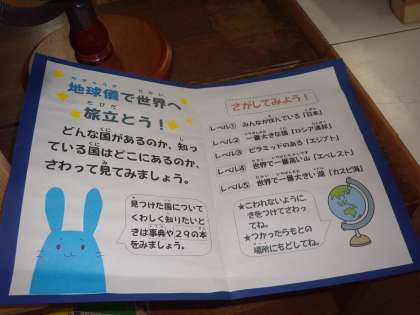 地球儀で世界へ
旅立とう！
どんな国があるのか、知っ
ている国はどこにあるのか、
さわって見てみましょう。
見つけた国について
くわしく知りたいと
きは事典や２９の本
をみましょう。
さがしてみよう！
レベル① みんなが住んでいる「日本」
レベル② 一番大きな国「ロシア連邦」
レベル③ ピラミッドのある「エジプト」
レベル④ 世界で一番高い山「エベレスト」
レベル⑤ 世界で一番大きい湖「カスピ海」
★こわれないように、
きをつけてさわっ
てね。
★つかったらもとの
場所にもどしてね。